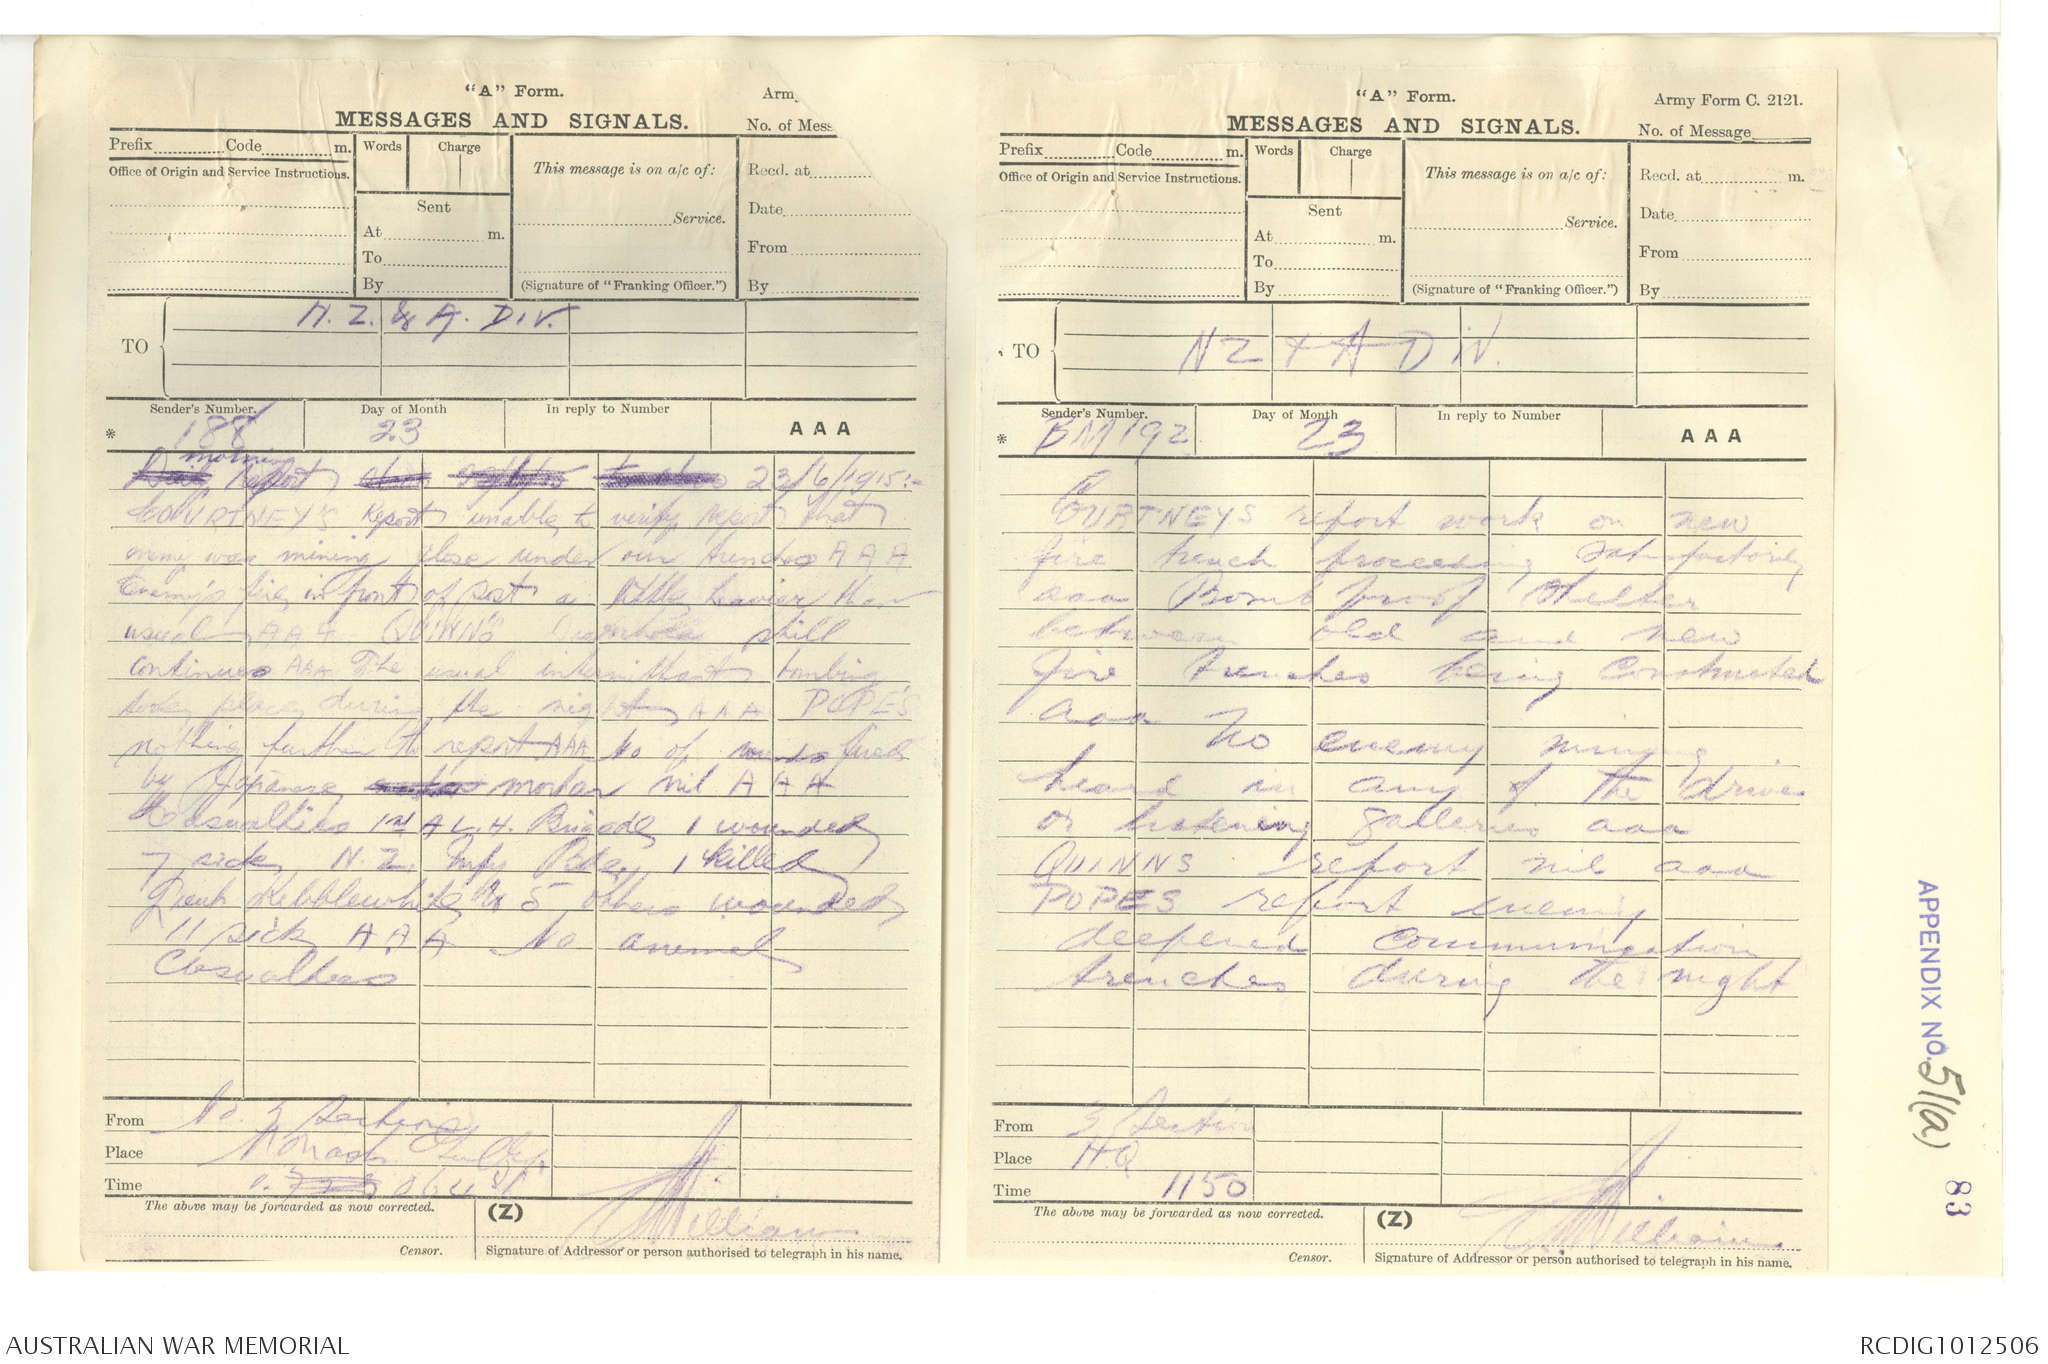 "A" Form.
MESSAGES AND SIGNALS.
Army
No. of Mess
Prefix Code m.
Words Charge
This message is on a/c of:
Recd. at
Office of Origin and Service Instructions.
Sent
Service.
Date
At m.
From
To
By
(Signature of "Franking Officer.")
By
TO
N. Z. & A. DIV.
Sender's Number. Day of Month In reply to Number
* 188 23 AAA
morning
report 23/6/1915:-
COURTNEY'S report unable to verify report that
enemy was mining close under our trenches AAA
Enemy's fire in front of post a little heavier than
usual AAA QUINN'S still
continues AAA The usual intermittent bombing
took place during the night AAA POPE'S
nothing further to report AAA No of rounds fired
by Japanese mortar nil AAA
Casualties 1st A L. H. Brigade 1 wounded
7 sick N. Z. Infy Bde, 1 killed
Lieut Kebblewhite & 5 others wounded
11 sick AAA No animal
Casualties
From No. 3 Section
Place Monash Gully
Time
The above may be forwarded as now corrected.
(Z)
Censor.
Signature of Addressor or person authorised to telegraph in his name.
"A" Form.
Army Form C. 2121.
MESSAGES AND SIGNALS.
No. of Message
Prefix Code m.
Words Charge
This message is on a/c of:
Recd. at m.
Office of Origin and Service Instructions.
Sent
Service.
Date
At m.
From
To
By
(Signature of "Franking Officer.")
By
TO
NZ + A DIV.
Sender's Number. Day of Month In reply to Number
* BM192 23 AAA
COURTNEYS report work on new
fire trench proceeding satisfactorily
aaa Bomb proof shelter
between old and new
fire trenches being constructed
aaa No enemy mining
heard in any of the drives
or listening galleries aaa
QUINNS report nil aaa
POPES report enemy
deepened communication
trenches during the night
From 3 Section
Place HQ
Time 1150
The above may be forwarded as now corrected.
(Z)
Censor.
Signature of Addressor or person authorised to telegraph in his name.
APPENDIX NO. 51(a)
83
AUSTRALIAN WAR MEMORIAL
RCDIG1012506